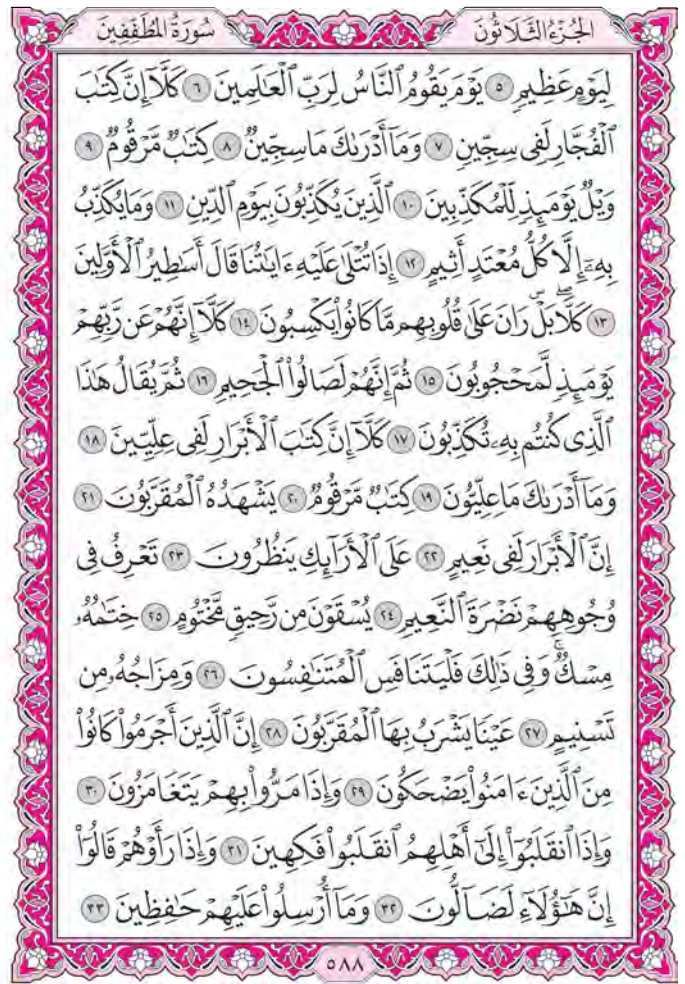 الجُزْءُ الثَّلَاثُونَ سُورَةُ المُطَفِّفِينَ
لِيَوْمٍ عَظِيمٍ ٥ يَوْمَ يَقُومُ ٱلنَّاسُ لِرَبِّ ٱلْعَٰلَمِينَ ٦ كَلَّآ إِنَّ كِتَٰبَ
ٱلْفُجَّارِ لَفِى سِجِّينٍ ٧ وَمَآ أَدْرَىٰكَ مَا سِجِّينٌ ٨ كِتَٰبٌ مَّرْقُومٌ ٩
وَيْلٌ يَوْمَئِذٍ لِّلْمُكَذِّبِينَ ١٠ ٱلَّذِينَ يُكَذِّبُونَ بِيَوْمِ ٱلدِّينِ ١١ وَمَا يُكَذِّبُ
بِهِۦٓ إِلَّا كُلُّ مُعْتَدٍ أَثِيمٍ ١٢ إِذَا تُتْلَىٰ عَلَيْهِ ءَايَٰتُنَا قَالَ أَسَٰطِيرُ ٱلْأَوَّلِينَ
١٣ كَلَّا ۖ بَلْ ۜ رَانَ عَلَىٰ قُلُوبِهِم مَّا كَانُوا۟ يَكْسِبُونَ ١٤ كَلَّآ إِنَّهُمْ عَن رَّبِّهِمْ
يَوْمَئِذٍ لَّمَحْجُوبُونَ ١٥ ثُمَّ إِنَّهُمْ لَصَالُوا۟ ٱلْجَحِيمِ ١٦ ثُمَّ يُقَالُ هَٰذَا
ٱلَّذِى كُنتُم بِهِۦ تُكَذِّبُونَ ١٧ كَلَّآ إِنَّ كِتَٰبَ ٱلْأَبْرَارِ لَفِى عِلِّيِّينَ ١٨
وَمَآ أَدْرَىٰكَ مَا عِلِّيُّونَ ١٩ كِتَٰبٌ مَّرْقُومٌ ٢٠ يَشْهَدُهُ ٱلْمُقَرَّبُونَ ٢١
إِنَّ ٱلْأَبْرَارَ لَفِى نَعِيمٍ ٢٢ عَلَى ٱلْأَرَآئِكِ يَنظُرُونَ ٢٣ تَعْرِفُ فِى
وُجُوهِهِمْ نَضْرَةَ ٱلنَّعِيمِ ٢٤ يُسْقَوْنَ مِن رَّحِيقٍ مَّخْتُومٍ ٢٥ خِتَٰمُهُۥ
مِسْكٌ ۚ وَفِى ذَٰلِكَ فَلْيَتَنَافَسِ ٱلْمُتَنَٰفِسُونَ ٢٦ وَمِزَاجُهُۥ مِن
تَسْنِيمٍ ٢٧ عَيْنًا يَشْرَبُ بِهَا ٱلْمُقَرَّبُونَ ٢٨ إِنَّ ٱلَّذِينَ أَجْرَمُوا۟ كَانُوا۟
مِنَ ٱلَّذِينَ ءَامَنُوا۟ يَضْحَكُونَ ٢٩ وَإِذَا مَرُّوا۟ بِهِمْ يَتَغَامَزُونَ ٣٠
وَإِذَا ٱنقَلَبُوٓا۟ إِلَىٰٓ أَهْلِهِمُ ٱنقَلَبُوا۟ فَكِهِينَ ٣١ وَإِذَا رَأَوْهُمْ قَالُوٓا۟
إِنَّ هَٰٓؤُلَآءِ لَضَآلُّونَ ٣٢ وَمَآ أُرْسِلُوا۟ عَلَيْهِمْ حَٰفِظِينَ ٣٣
٥٨٨